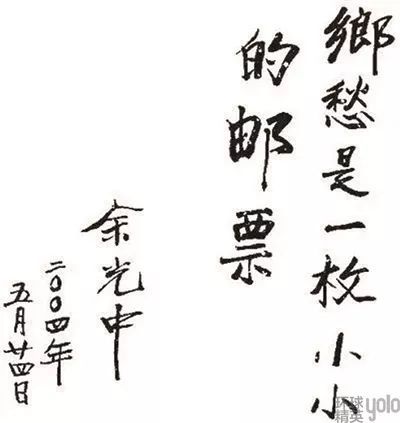 鄉愁是一枚小小
的邮票
余光中
二〇〇四年
五月廿四日
环球
精英
yolo